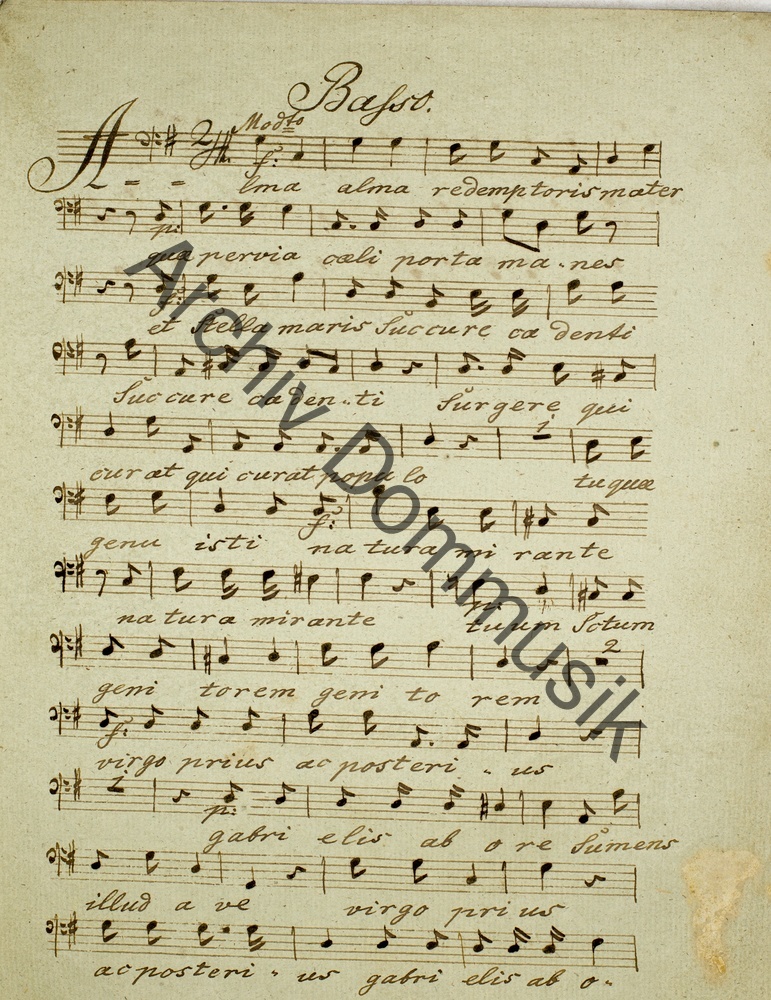 Basso.
Modto
A - - lma alma redemptoris mater
p:
quæ pervia cæli porta ma - nes
et Stella maris Succure ca denti
Succure caden - ti Surgere qui
1
curat qui curat popu lo tu quæ
f:
genu isti na tura mi rante
p:
na tura mirante tuum Sctum
2
geni torem geni to rem
f:
virgo prius ac posteri - us
1
p:
gabri elis ab o re Sumens
illud a ve virgo pri us
ac posteri - us gabri elis ab o -
Archiv Dommusik